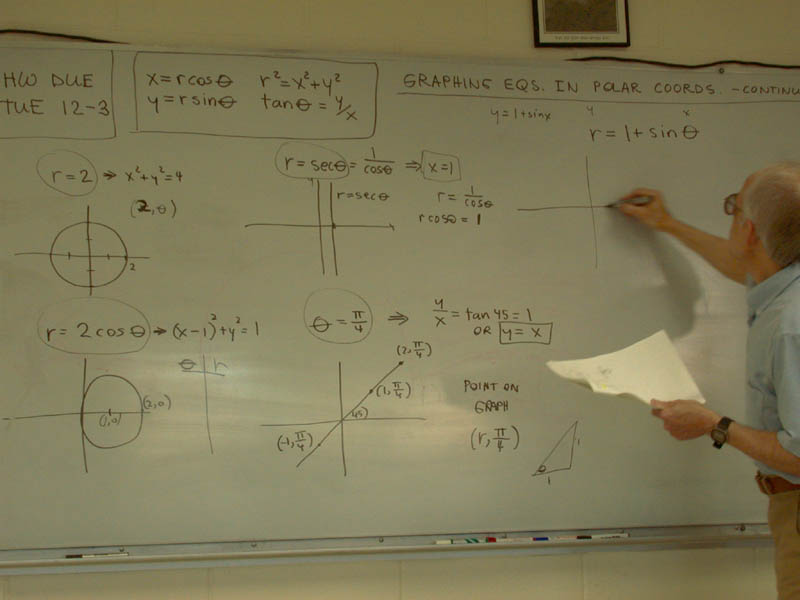 HW DUE
TUE 12-3
x=rcosθ r²=x²+y²
y=rsinθ tanθ=y/x
GRAPHING EQS. IN POLAR COORDS. -CONTINU
y=1+sinx
y x
r=1+sinθ
r=2 → x²+y²=4
(2,θ)
2
r=secθ=1/cosθ ⇒ x=1
r=secθ
r=1/cosθ
rcosθ=1
r=2cosθ → (x-1)²+y²=1
θ r
(1,0)
(2,0)
θ=π/4 ⇒ y/x=tan45=1
OR y=x
(2,π/4)
(1,π/4)
45
(-1,π/4)
POINT ON
GRAPH
(r,π/4)
θ
1
1